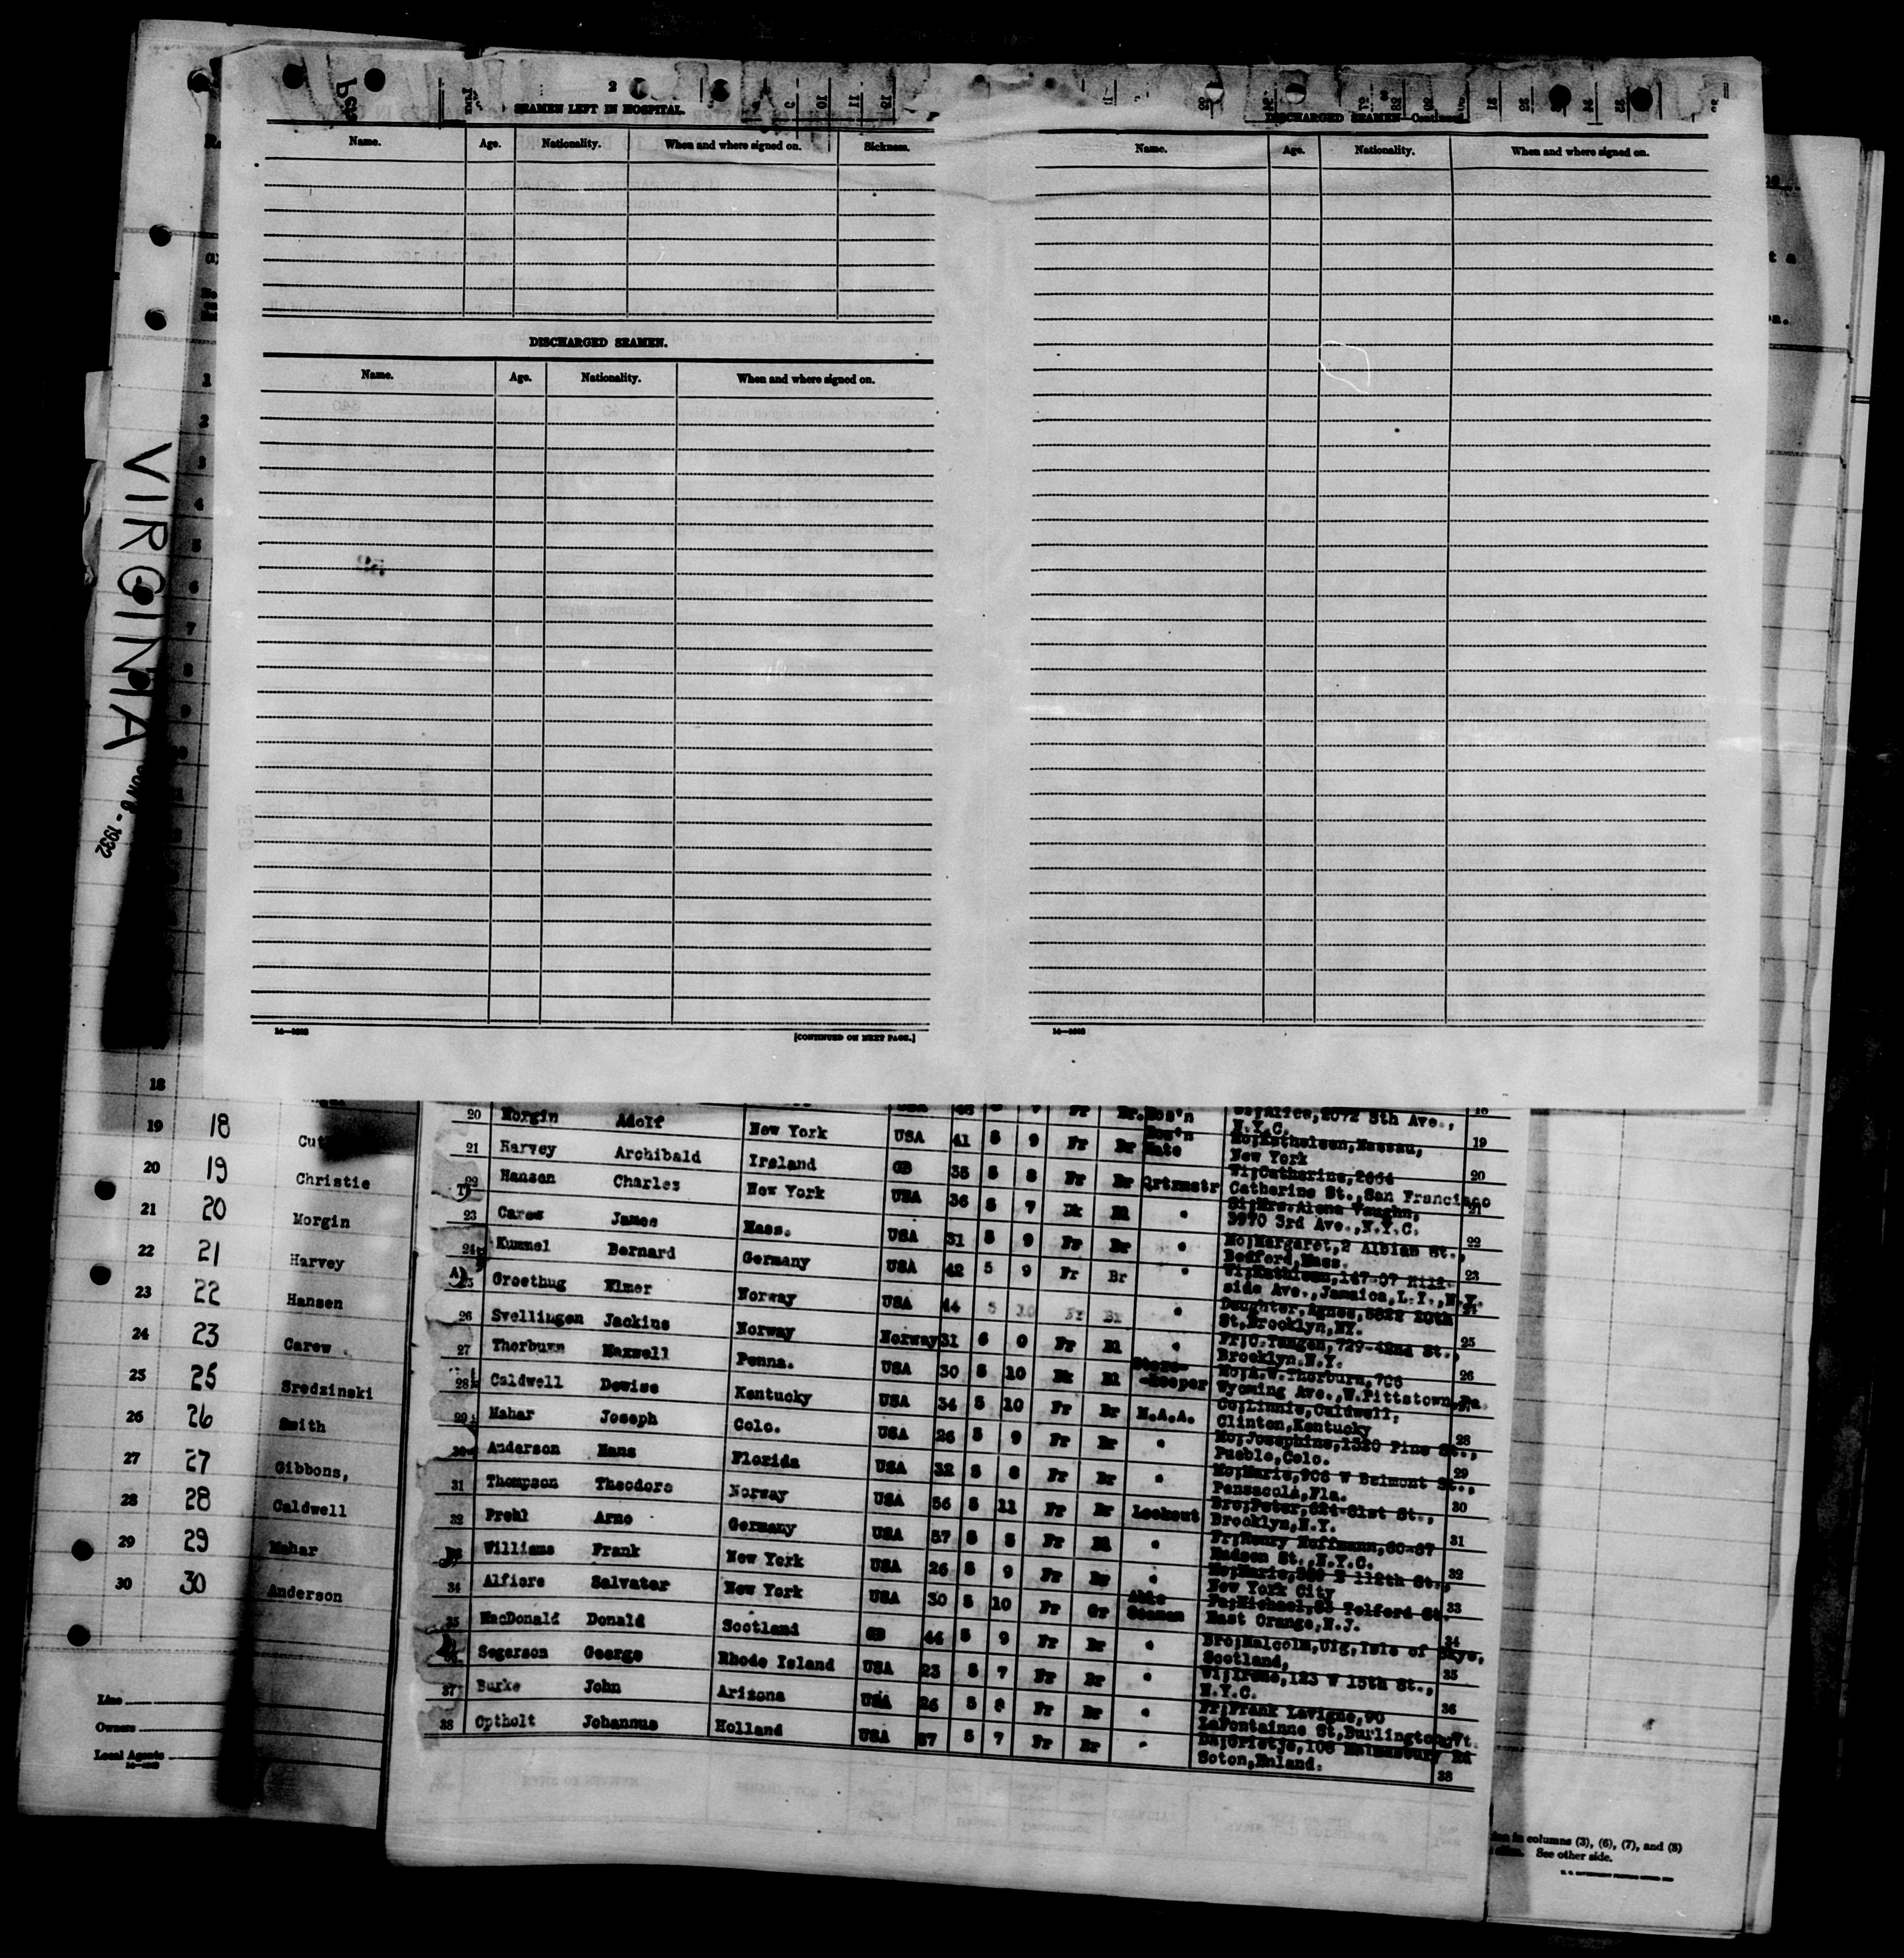 VIRGINIA
- 1932
2
SEAMEN LEFT IN HOSPITAL.
Name. Age. Nationality. When and where signed on. Sickness.
DISCHARGED SEAMEN.
Name. Age. Nationality. When and where signed on.
14—4648
[CONTINUED ON NEXT PAGE.]
DISCHARGED SEAMEN—Continued
Name. Age. Nationality. When and where signed on.
14—4648
1
2
3
4
5
6
7
8
9
18
19 18
20 19 Christie
21 20 Morgin
22 21 Harvey
23 22 Hansen
24 23 Carew
25 25 Sredzinski
26 26 Smith
27 27 Gibbons,
28 28 Caldwell
29 29 Mahar
30 30 Anderson
Line
Owners
Local Agents
20 Morgin Adolf New York USA 41 5 9 Fr Br Bos'n Mate New York 19
21 Harvey Archibald Ireland GB 35 5 8 Fr Br Qrtrmstr Wi;Catherine, Catherine St., San Francisco 20
22 Hansen Charles New York USA 36 5 7 Dk Bl " Si;Mrs.Alena Vaughn, 3970 3rd Ave.,N.Y.C. 21
23 Carew James Mass. USA 31 5 9 Fr Br " Mo;Margaret,2 Albian St., Bedford,Mass. 22
24 Kummel Bernard Germany USA 42 5 9 Fr Br " Wi;Kathleen,147-37 Hillside Ave.,Jamaica,L.I.,N.Y. 23
25 Groethug Elmer Norway USA 44 5 10 Fr Br " Daughter,Agnes, St,Brooklyn,NY.
26 Svellingen Jackius Norway Norway 31 6 0 Fr Bl " Fr;C.Tangen,729-42nd St., Brooklyn.N.Y. 25
27 Thorburn Maxwell Penna. USA 30 5 10 Dk Bl Store-keeper Mo;A.W.Thorburn,706 Wyoming Ave.,W.Pittstown,Pa. 26
28 Caldwell Dewise Kentucky USA 34 5 10 Fr Br M.A.A. Co;Linnie,Caldwell, Clinton,Kentucky
29 Mahar Joseph Colo. USA 26 5 9 Fr Br " Mo;Josephine,1320 Pine St., Pueblo,Colo. 28
30 Anderson Hans Florida USA 32 5 8 Fr Br " Mo;Marie,906 W Belmont St., Pensacola,Fla. 29
31 Thompson Theodore Norway USA 56 5 11 Fr Br Lookout Bro;Peter,624-81st St., Brooklyn,N.Y. 30
32 Prehl Arno Germany USA 57 5 5 Fr Bl " Fr;Henry Hoffmann,60-67 Hudson St.,N.Y.C. 31
Williams Frank New York USA 26 5 9 Fr Br " Mo;Marie, E 112th St., New York City 32
34 Alfiere Salvator New York USA 30 5 10 Fr Gr Able Seaman Fa;Michael,83 Telford St. East Orange,N.J. 33
35 MacDonald Donald Scotland GB 44 5 9 Fr Br " Bro;Malcolm,Uig,Isle of Skye, Scotland, 34
Segerson George Rhode Island USA 23 5 7 Fr Br " Wi;Irene,123 W 15th St., N.Y.C. 35
37 Burke John Arizona USA 26 5 8 Fr Br " Fr;Frank Lavigne,90 LaFontainne St,Burlington,Vt. 36
38 Optholt Johannus Holland USA 37 5 7 Fr Br " Da;Grietje,106 Malmesbury Rd Soton,Enland. 38
in columns (3), (6), (7), and (8)
See other side.